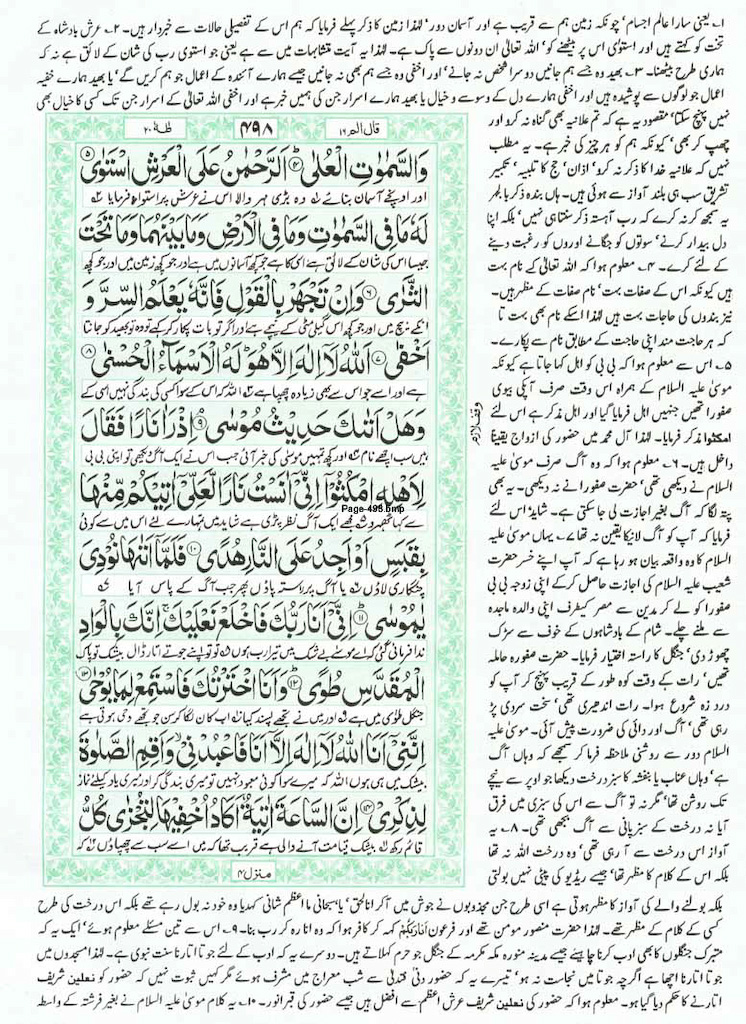 ۱۔ یعنی سارا عالم اجسام' چونکہ زمین ہم سے قریب ہے اور آسمان دور' لہٰذا زمین کا ذکر پہلے فرمایا کہ ہم اس کے تفصیلی حالات سے خبردار ہیں۔ ۲۔ عرش بادشاہ کے
تخت کو کہتے ہیں اور استویٰ اس پر بیٹھنے کو' اللہ تعالیٰ ان دونوں سے پاک ہے۔ لہٰذا یہ آیت متشابہات میں سے ہے یعنی جو استویٰ رب کی شان کے لائق ہے نہ کہ
ہماری طرح بیٹھنا۔ ۳۔ بھید وہ جسے ہم جانیں دوسرا شخص نہ جانے' اور اخفیٰ وہ جسے ہم بھی نہ جانیں جیسے ہمارے آئندہ کے اعمال جو ہم کریں گے' یا بھید ہمارے خفیہ
اعمال جو لوگوں سے پوشیدہ ہیں اور اخفیٰ ہمارے دل کے وسوسے و خیال یا بھید ہمارے اسرار جن کی ہمیں خبر ہے اور اخفیٰ اللہ تعالیٰ کے اسرار جن تک کسی کا خیال بھی
نہیں پہنچ سکتا' مقصود یہ ہے کہ تم علانیہ بھی گناہ نہ کرو اور
چھپ کر بھی' کیونکہ ہم کو ہر چیز کی خبر ہے۔ یہ مطلب
نہیں کہ علانیہ خدا کا ذکر نہ کرو' اذان' حج کا تلبیہ' تکبیر
تشریق سب ہی بلند آواز سے ہوتی ہیں۔ ہاں بندہ ذکر بالجہر
یہ سمجھ کر نہ کرے کہ رب آہستہ ذکر سنتا ہی نہیں' بلکہ اپنا
دل بیدار کرنے' سوتوں کو جگانے اوروں کو رغبت دینے
کے لئے کرے۔ ۴۔ معلوم ہوا کہ اللہ تعالیٰ کے نام بہت
ہیں کیونکہ اس کے صفات بہت' نام صفات کے مظہر ہیں۔
نیز بندوں کی حاجات بہت ہیں لہٰذا اسکے نام بھی بہت تا
کہ ہر حاجت مند اپنی حاجت کے مطابق نام سے پکارے۔
۵۔ اس سے معلوم ہوا کہ بی بی کو اہل کہا جاتا ہے کیونکہ
موسیٰ علیہ السلام کے ہمراہ اس وقت صرف آپکی بیوی
صفورا تھیں جنہیں اہل فرمایا گیا اور اہل مذکر ہے اس لئے
امکثوا مذکر فرمایا۔ لہٰذا آل محمد میں حضور کی ازواج یقیناً
داخل ہیں۔ ۶۔ معلوم ہوا کہ وہ آگ صرف موسیٰ علیہ
السلام نے دیکھی تھی' حضرت صفورا نے نہ دیکھی۔ یہ بھی
پتہ لگا کہ آگ بغیر اجازت لی جا سکتی ہے۔ شاید' اس لئے
فرمایا کہ آپ کو آگ لانیکا یقین نہ تھا ۷۔ یہاں موسیٰ علیہ
السلام کا وہ واقعہ بیان ہو رہا ہے کہ آپ اپنے خسر حضرت
شعیب علیہ السلام کی اجازت حاصل کر کے اپنی زوجہ بی بی
صفورا کو لے کر مدین سے مصر کیطرف اپنی والدہ ماجدہ
سے ملنے چلے۔ شام کے بادشاہوں کے خوف سے سڑک
چھوڑ دی' جنگل کا راستہ اختیار فرمایا۔ حضرت صفورہ حاملہ
تھیں' رات کے وقت کوہ طور کے قریب پہنچ کر آپ کو
درد زہ شروع ہوا۔ رات اندھیری تھی' سخت سردی پڑ
رہی تھی' آگ اور دائی کی ضرورت پیش آئی۔ موسیٰ علیہ
السلام دور سے روشنی ملاحظہ فرما کر سمجھے کہ وہاں آگ
ہے' وہاں عناب یا بنفشہ کا سبز درخت دیکھا جو اوپر سے نیچے
تک روشن تھا' مگر نہ تو آگ سے اس کی سبزی میں فرق
آیا نہ درخت کے سبز پانی سے آگ بجھی تھی۔ ۸۔ یہ
آواز اس درخت سے آ رہی تھی' وہ درخت اللہ نہ تھا
بلکہ اس کے کلام کا مظہر تھا' جیسے ریڈیو کی پیٹی نہیں بولتی
وقف لازم
قال الم ۱۶
۴۹۸
طٰہٰ ۲۰
وَالسَّمٰوٰتِ الْعُلٰى ۴ اَلرَّحْمٰنُ عَلَى الْعَرْشِ اسْتَوٰى ۵
اور اونچے آسمان بنائے وہ بڑی مہر والا اس نے عرش پر استواء فرمایا
لَهٗ مَا فِى السَّمٰوٰتِ وَمَا فِى الْاَرْضِ وَمَا بَيْنَهُمَا وَمَا تَحْتَ
جیسا اس کی شان کے لائق ہے اسی کا ہے جو کچھ آسمانوں میں ہے اور جو کچھ زمین میں اور جو کچھ
الثَّرٰى ۶ وَاِنْ تَجْهَرْ بِالْقَوْلِ فَاِنَّهٗ يَعْلَمُ السِّرَّ وَ
انکے بیچ میں اور جو کچھ اس گیلی مٹی کے نیچے ہے اور اگر تو بات پکار کر کہے تو وہ تو بھید کو جانتا
اَخْفٰى ۷ اَللّٰهُ لَاۤ اِلٰهَ اِلَّا هُوَ لَهُ الْاَسْمَآءُ الْحُسْنٰى ۸
ہے اور اسے جو اس سے بھی زیادہ چھپا ہے اللہ کہ اس کے سوا کسی کی بندگی نہیں اسی کے
وَهَلْ اَتٰىكَ حَدِيْثُ مُوْسٰى ۹ اِذْ رَاٰ نَارًا فَقَالَ
ہیں سب اچھے نام اور کچھ تمہیں موسیٰ کی خبر آئی جب اس نے ایک آگ دیکھی تو اپنی بی بی
لِاَهْلِهِ امْكُثُوْۤا اِنِّىْۤ اٰنَسْتُ نَارًا لَّعَلِّىْۤ اٰتِيْكُمْ مِّنْهَا
Page-498.bmp
سے کہا ٹھہرو مجھے ایک آگ نظر پڑی ہے شاید میں تمہارے لئے اس میں سے کوئی
بِقَبَسٍ اَوْ اَجِدُ عَلَى النَّارِ هُدًى ۱۰ فَلَمَّاۤ اَتٰىهَا نُوْدِىَ
چنگاری لاؤں یا آگ پر راستہ پاؤں پھر جب آگ کے پاس آیا
يٰمُوْسٰى ۱۱ اِنِّىْۤ اَنَا رَبُّكَ فَاخْلَعْ نَعْلَيْكَ اِنَّكَ بِالْوَادِ
ندا فرمائی گئی کہ اے موسیٰ بے شک میں تیرا رب ہوں تو تو اپنے جوتے اتار ڈال بیشک تو پاک
الْمُقَدَّسِ طُوًى ۱۲ وَاَنَا اخْتَرْتُكَ فَاسْتَمِعْ لِمَا يُوْحٰى ۱۳
جنگل طویٰ میں ہے اور میں نے تجھے پسند کیا اب کان لگا کر سن جو تجھے وحی ہوتی ہے
اِنَّنِىْۤ اَنَا اللّٰهُ لَاۤ اِلٰهَ اِلَّاۤ اَنَا فَاعْبُدْنِىْ وَاَقِمِ الصَّلٰوةَ
بیشک میں ہی ہوں اللہ کہ میرے سوا کوئی معبود نہیں تو میری بندگی کر اور میری یاد کیلئے نماز
لِذِكْرِىْ ۱۴ اِنَّ السَّاعَةَ اٰتِيَةٌ اَكَادُ اُخْفِيْهَا لِتُجْزٰى كُلُّ
قائم رکھ بیشک قیامت آنے والی ہے قریب تھا کہ میں اسے سب سے چھپاؤں
منزل ۴
بلکہ بولنے والے کی آواز کا مظہر ہوتی ہے اسی طرح جن مجذوبوں نے جوش میں آ کر انا الحق' یا سبحانی ما اعظم شانی کہدیا وہ خود نہ بول رہے تھے بلکہ اس درخت کی طرح
کسی کے کلام کے مظہر تھے۔ لہٰذا حضرت منصور مومن تھے اور فرعون اَنَا رَبُّكُمْ کہہ کر کافر ہوا کہ وہ انا رہ کر رب بنا۔ ۹۔ اس سے تین مسئلے معلوم ہوئے' ایک یہ کہ
متبرک جنگلوں کا بھی ادب کرنا چاہیئے جیسے مدینہ منورہ مکہ مکرمہ کے جنگل جو حرم کہلاتے ہیں۔ دوسرے یہ کہ ادب کے لئے جوتا اتارنا سنت نبوی ہے۔ لہٰذا مسجدوں میں
جوتا اتارنا اچھا ہے اگرچہ جوتا میں نجاست نہ ہو' تیسرے یہ کہ حضور دنیٰ فتدلیٰ سے شب معراج میں مشرف ہوئے مگر کہیں ثبوت نہیں کہ حضور کو نعلین شریف
اتارنے کا حکم دیا گیا ہو۔ معلوم ہوا کہ حضور کی نعلین شریف عرش اعظم سے افضل ہیں جیسے حضور کی قبر انور۔ ۱۰۔ یہ کلام موسیٰ علیہ السلام نے بغیر فرشتہ کے واسطہ